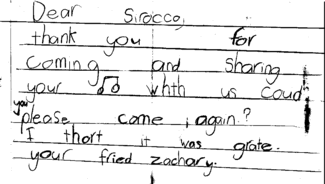 Dear Sirocco,
thank you for
coming and sharing
your ♫ whth us Coud
you
please come again?
I thort it was grate.
your fried zachary.